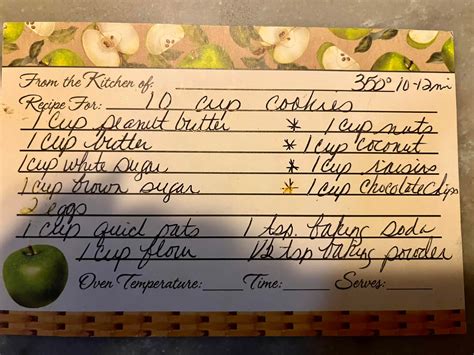 From the Kitchen of: 350° 10-12mi
Recipe For: 10 cup cookies
1 cup peanut butter * 1 cup nuts
1 cup butter * 1 cup coconut
1 cup white sugar * 1 cup raisins
1 cup brown sugar * 1 cup chocolate chips
2 eggs
1 cup quick oats 1 tsp. baking soda
1 cup flour 1/2 tsp baking powder
Oven Temperature: Time: Serves: